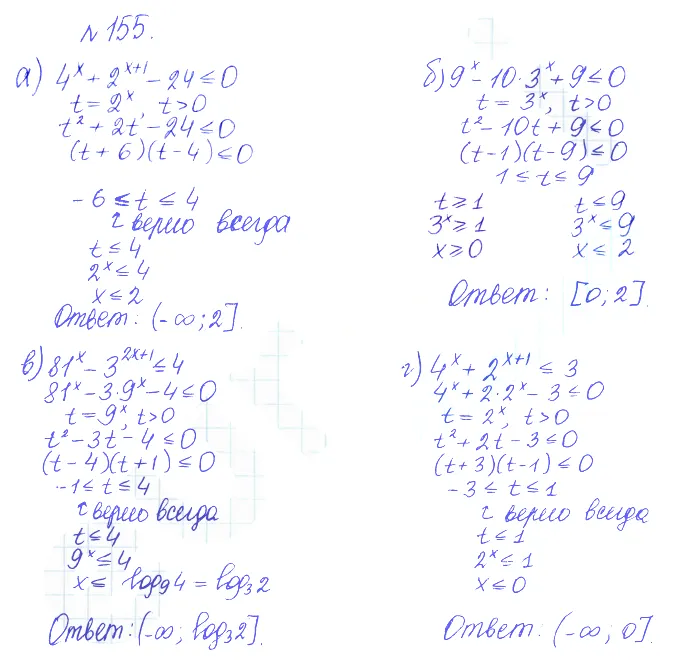 №155.
а) 4^x + 2^{x+1} − 24 ≤ 0
t = 2^x, t > 0
t² + 2t − 24 ≤ 0
(t + 6)(t − 4) ≤ 0
−6 ≤ t ≤ 4
верно всегда
t ≤ 4
2^x ≤ 4
x ≤ 2
Ответ: (−∞; 2].
б) 9^x − 10·3^x + 9 ≤ 0
t = 3^x, t > 0
t² − 10t + 9 ≤ 0
(t − 1)(t − 9) ≤ 0
1 ≤ t ≤ 9
t ≥ 1 t ≤ 9
3^x ≥ 1 3^x ≤ 9
x ≥ 0 x ≤ 2
Ответ: [0; 2].
в) 81^x − 3^{2x+1} ≤ 4
81^x − 3·9^x − 4 ≤ 0
t = 9^x, t > 0
t² − 3t − 4 ≤ 0
(t − 4)(t + 1) ≤ 0
−1 ≤ t ≤ 4
верно всегда
t ≤ 4
9^x ≤ 4
x ≤ log₉4 = log₃2
Ответ: (−∞; log₃2].
г) 4^x + 2^{x+1} ≤ 3
4^x + 2·2^x − 3 ≤ 0
t = 2^x, t > 0
t² + 2t − 3 ≤ 0
(t + 3)(t − 1) ≤ 0
−3 ≤ t ≤ 1
верно всегда
t ≤ 1
2^x ≤ 1
x ≤ 0
Ответ: (−∞; 0].